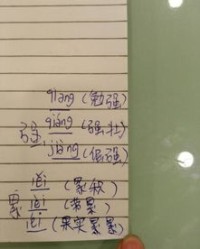 qiǎng (勉强)
强 qiáng (强壮)
jiàng (倔强)
lěi (累积)
累 lèi (劳累)
léi (果实累累)